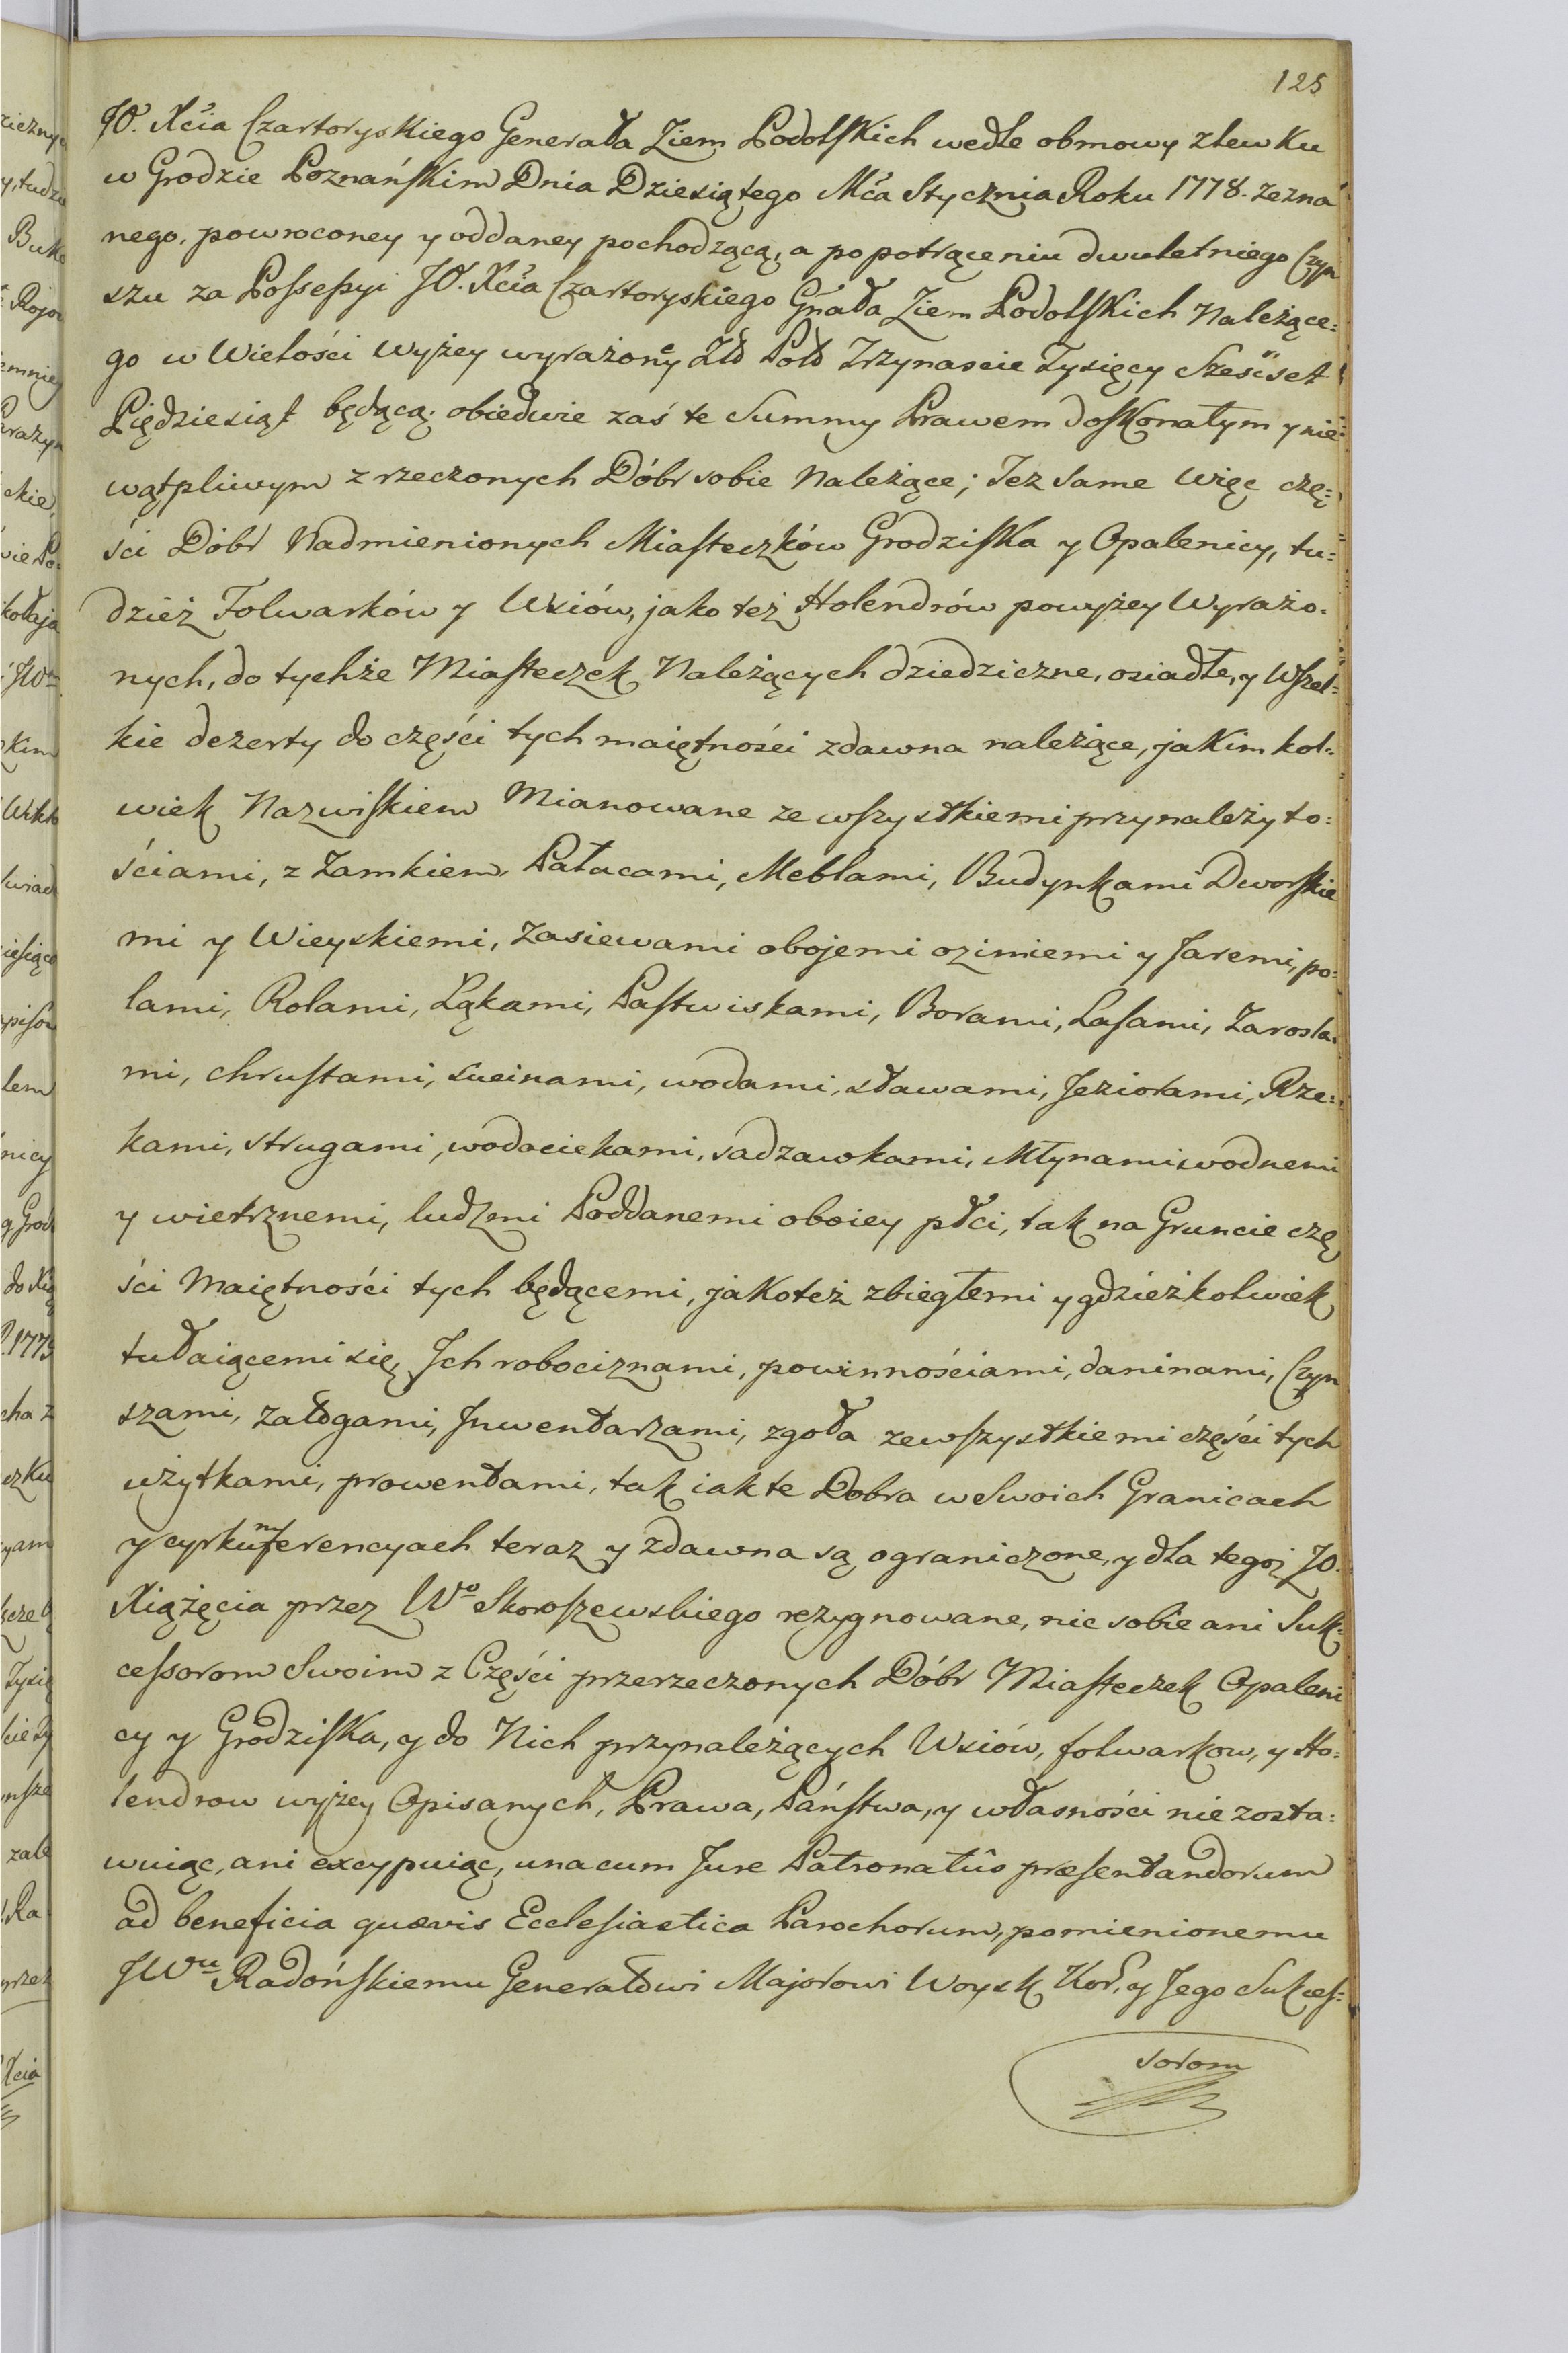 125
JO. Xcia Czartoryskiego Generała Ziem Podolskich wedle obmowy zlewku
w Grodzie Poznańskim Dnia Dziesiątego Mca Stycznia Roku 1778. zezna
nego, powroconey y oddaney pochodzącą, a po potrąceniu dwuletniego Czyn
szu za Possessyi JO. Xcia Czartoryskiego Gnała Ziem Podolskich Należące:
go w Wielości wyżey wyrażoney Zło Pols Trzynaście Tysięcy Sześciset
Pięдziesiąt będącą; obiedwie zaś te Summy Prawem doskonałym y nie:
wątpliwym z rzeczonych Dóbr sobie Należące; Też same więc czę:
ści Dóbr Nadmienionych Miasteczków Grodziska y Opalenicy, tu:
dzież Folwarków y Wsiów, jako też Holendrów powyżey Wyrażo:
nych, do tychże Miasteczek Należących dziedziczne, osiadłe, y Wszel:
kie dezerty do części tych maiętności zdawna należące, jakim kol:
wiek Nazwiskiem Mianowane ze wszystkiemi przynależyto:
ściami, z Zamkiem, Pałacami, Meblami, Budynkami Dworskie
mi y Wieyskiemi, Zasiewami obojemi ozimiemi y Jaremi, po:
lami, Rolami, Łąkami, Pastwiskami, Borami, Lasami, Zarosla:
mi, chrustami, sucinami, wodami, stawami, Jeziorami, Rze:
kami, strugami, wodociekami, sadzawkami, Młynami wodnemi
y wietrznemi, ludzmi Poddanemi oboiey płci, tak na Gruncie czę
ści Maiętności tych będącemi, jako też zbiegłemi y gdzieżkolwiek
tułaiącemi się, Ich robociznami, powinnościami, daninami, Czyn
szami, załogami, Inwentarzami, zgoła ze wszystkiemi części tych
użytkami, prowentami, tak iak te Dobra w Swoich Granicach
y cyrkumferencyach teraz y zdawna są ograniczone, y dla tegoż JO.
Xiążęcia przez Wo Skoroszewskiego rezygnowane, nic sobie ani Suk:
cessorom Swoim z Części przerzeczonych Dóbr Miasteczek Opaleni
cy y Grodziska, y do Nich przynależących Wsiów, folwarkow, y Ho:
lendrow wyżey Opisanych, Prawa, Państwa, y własności nie zosta:
wuiąc, ani excypuiąc, una cum Jure Patronatûs præsentandorum
ad beneficia quævis Ecclesiastica Parochorum, pomienionemu
JWu Radońskiemu Generałowi Majorowi Woysk Kor. y Jego Sukces:
sorom